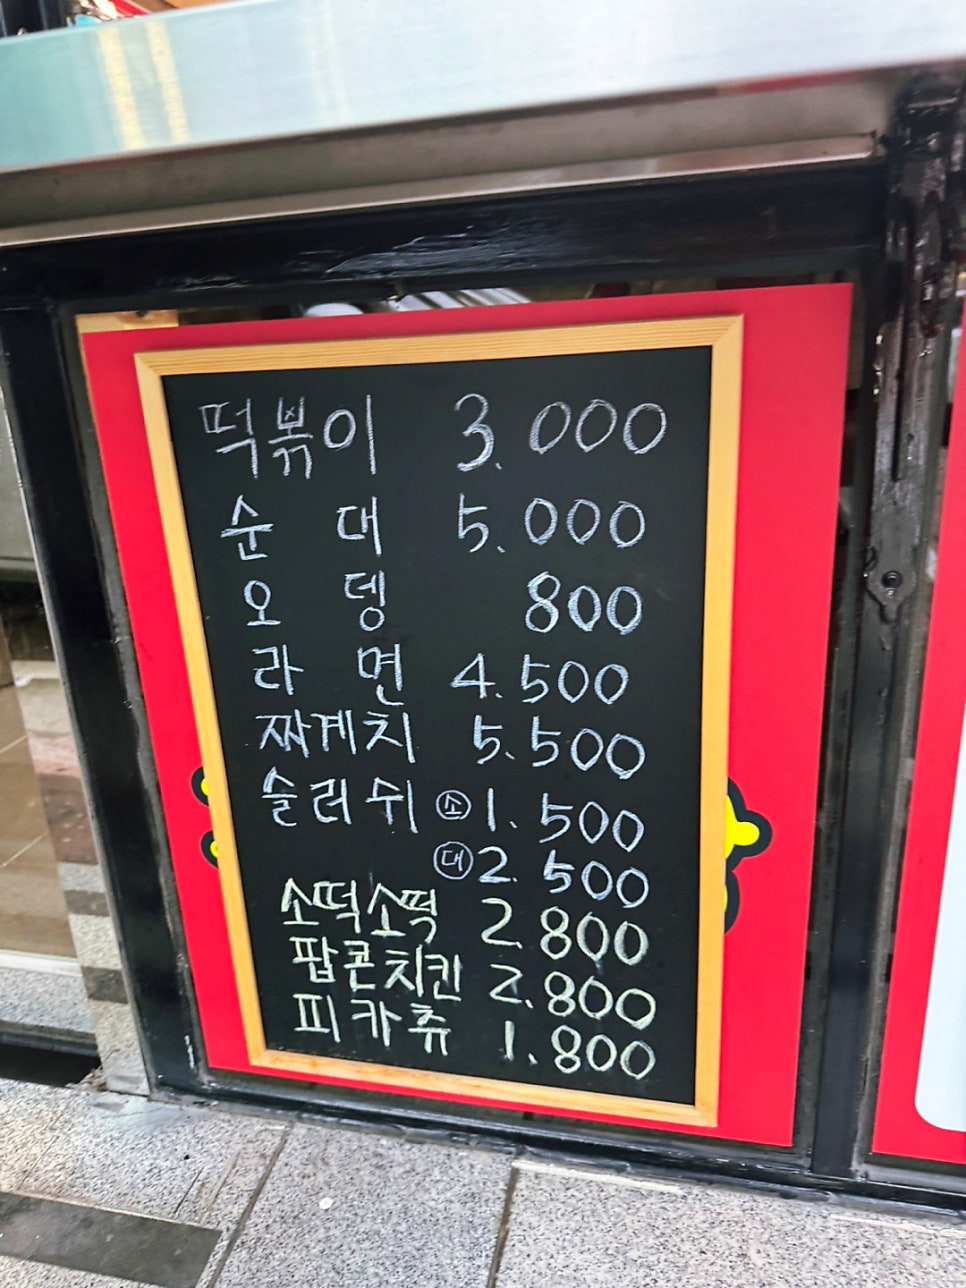 떡볶이 3.000
순 대 5.000
오 뎅 800
라 면 4.500
짜계치 5.500
슬러쉬 ㉦ 1.500
㉹ 2.500
소떡소떡 2.800
팝콘치킨 2.800
피카츄 1.800